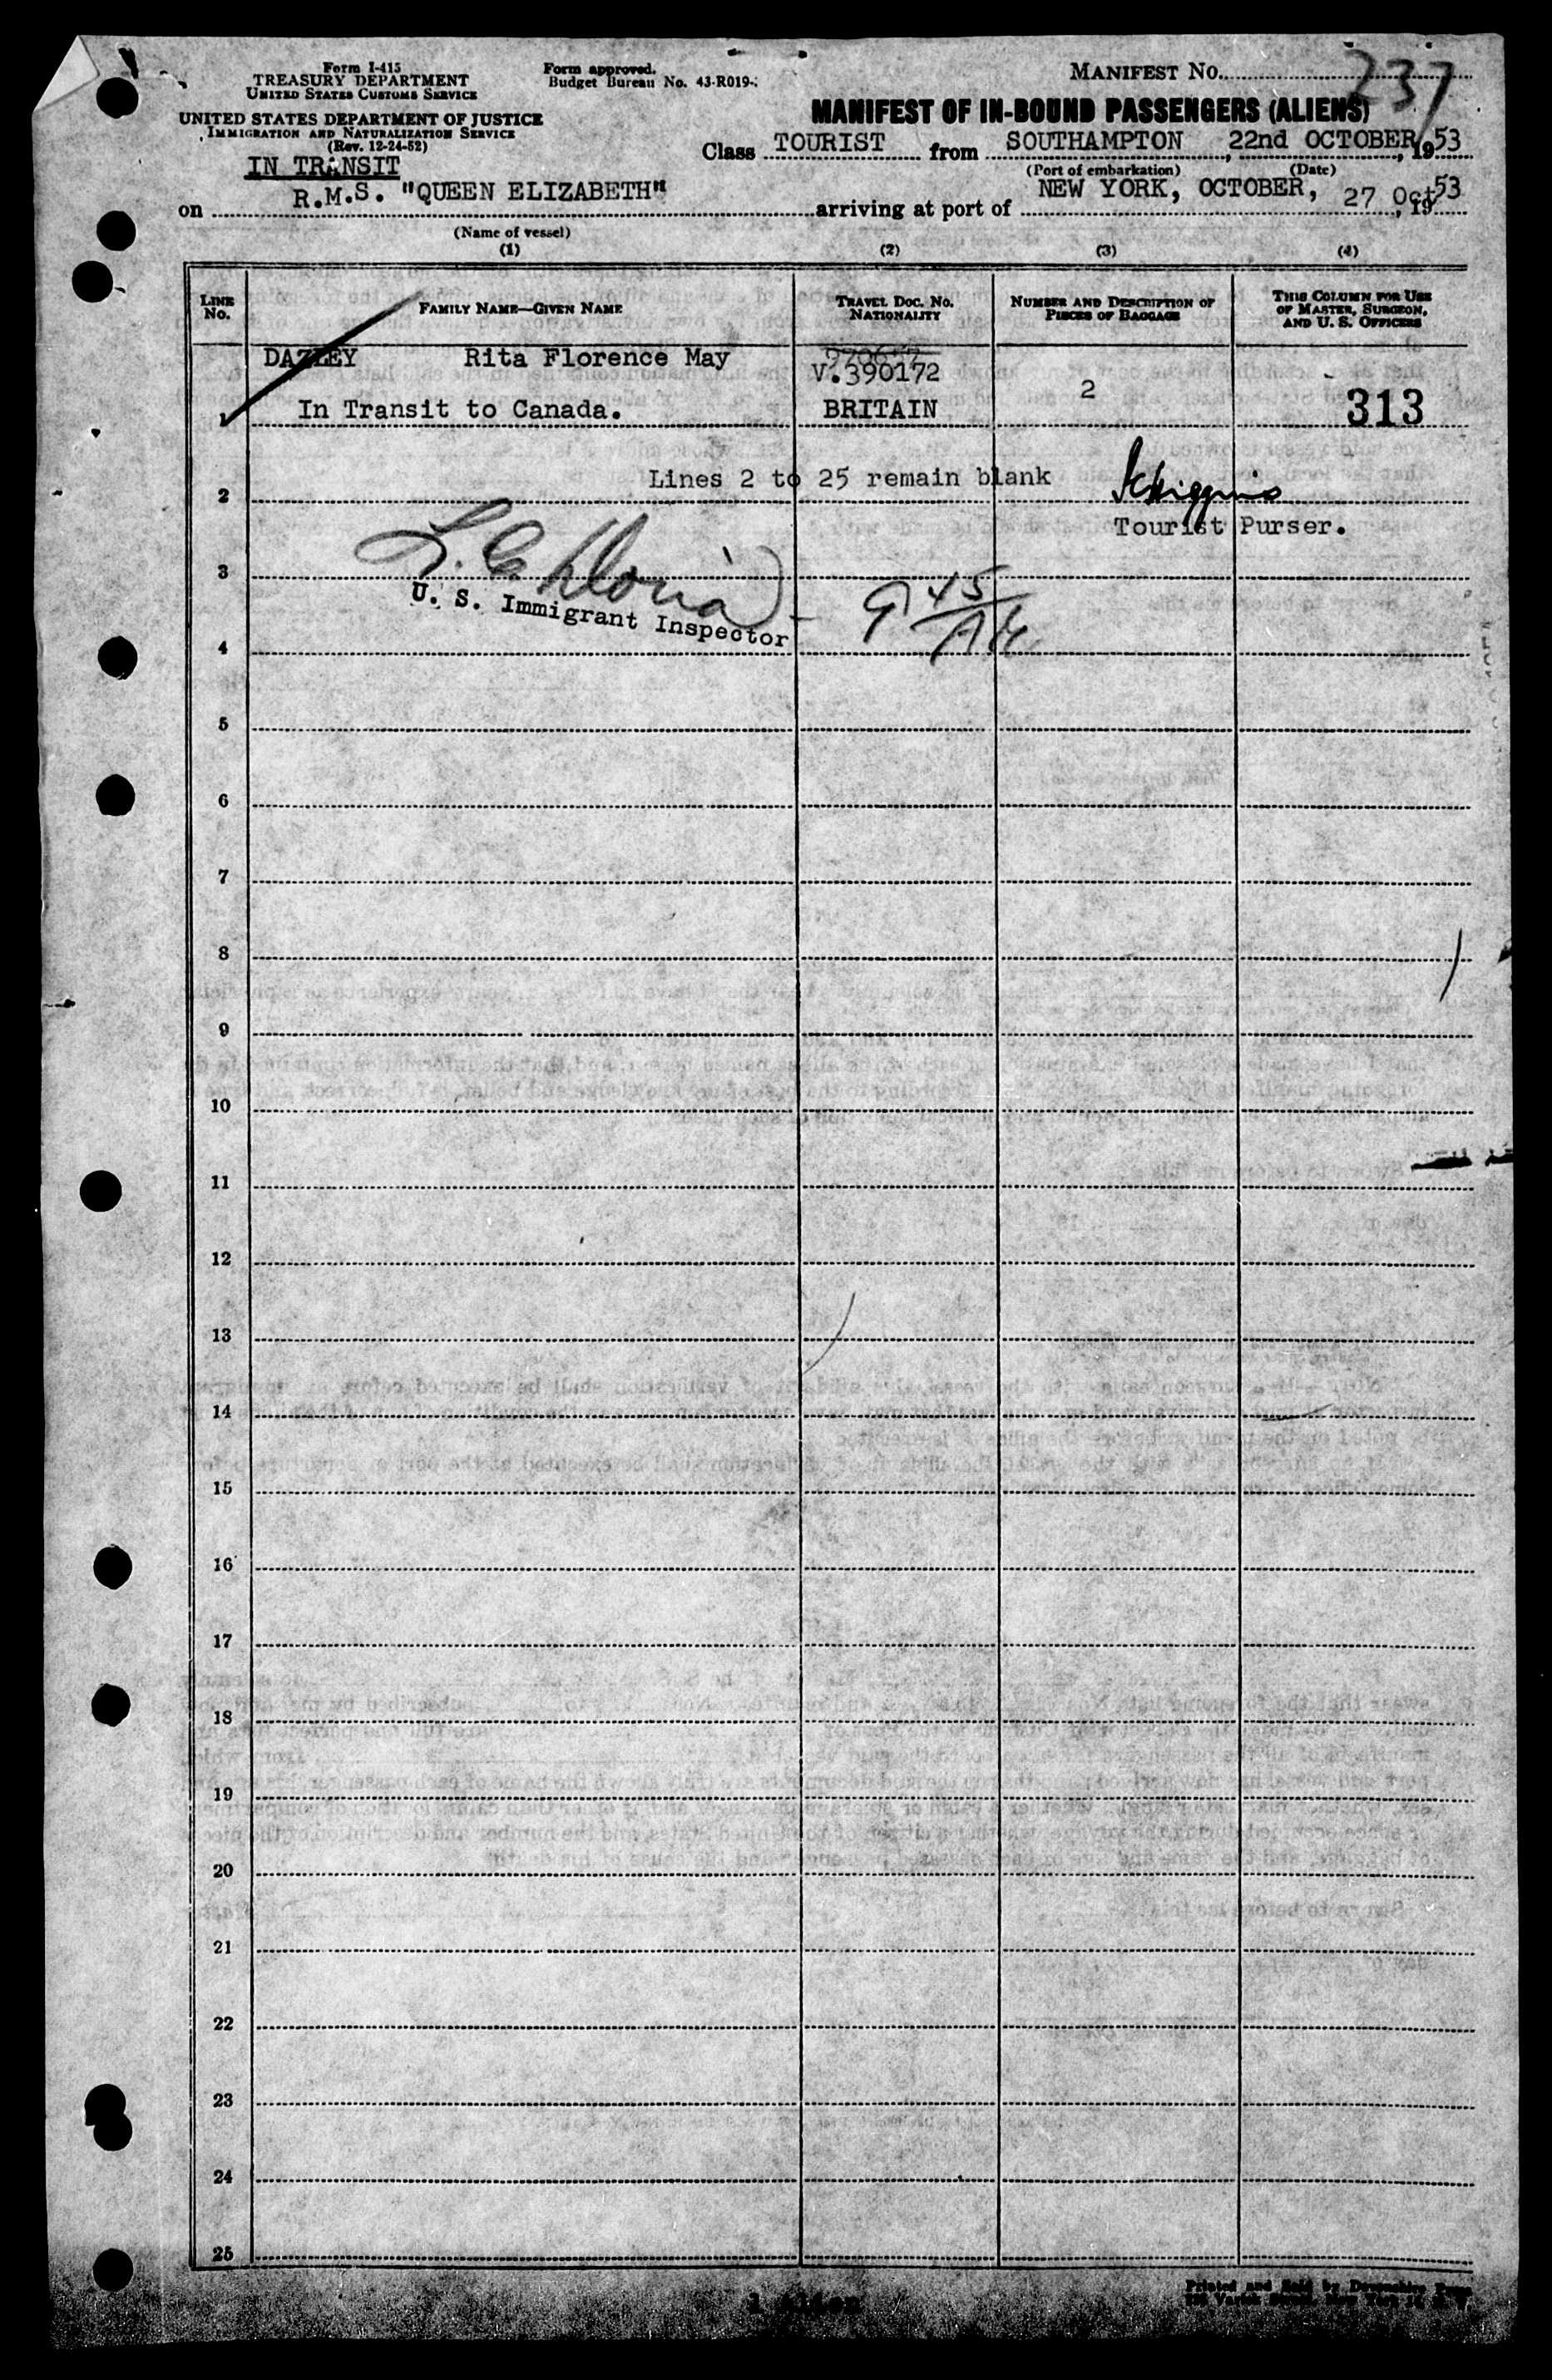 Form I-415
TREASURY DEPARTMENT
UNITED STATES CUSTOMS SERVICE
UNITED STATES DEPARTMENT OF JUSTICE
IMMIGRATION AND NATURALIZATION SERVICE
(Rev. 12-24-52)
Form approved.
Budget Bureau No. 43-R019-
MANIFEST NO. 237
MANIFEST OF IN-BOUND PASSENGERS (ALIENS)
IN TRANSIT
Class TOURIST from SOUTHAMPTON, 22nd OCTOBER, 1953
(Port of embarkation) (Date)
on R.M.S. "QUEEN ELIZABETH" arriving at port of NEW YORK, OCTOBER, 27 Oct, 1953
(Name of vessel)
(1) (2) (3) (4)
LINE NO. FAMILY NAME—GIVEN NAME TRAVEL DOC. NO. NATIONALITY NUMBER AND DESCRIPTION OF PIECES OF BAGGAGE THIS COLUMN FOR USE OF MASTER, SURGEON, AND U. S. OFFICERS
DAZLEY Rita Florence May V.390172 2
1 In Transit to Canada. BRITAIN 313
Lines 2 to 25 remain blank
2
Tourist Purser.
3
U. S. Immigrant Inspector
4
5
6
7
8
9
10
11
12
13
14
15
16
17
18
19
20
21
22
23
24
25
1 Alien